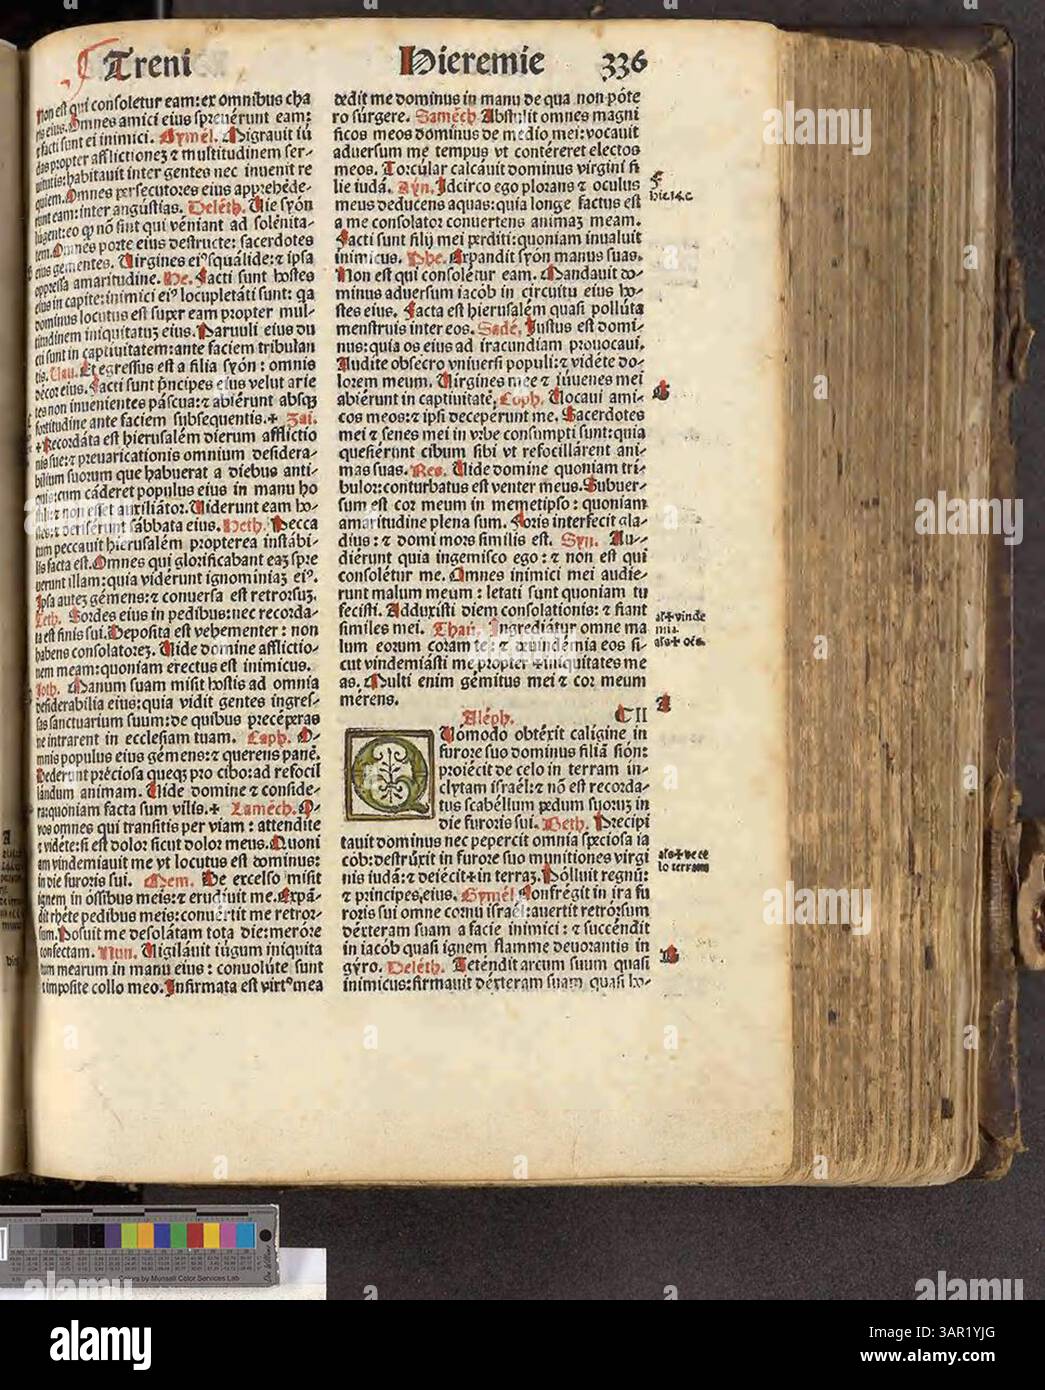 Treni
Hieremie 336
non est qui consoletur eam: ex omnibus cha
ris eius. Omnes amici eius spreuérunt eam:
⁊ facti sunt ei inimici. Gymél. Migrauit iu
das propter afflictionez ⁊ multitudinem ser-
uitutis: habitauit inter gentes nec inuenit re
quiem. Omnes persecutores eius apprehéde-
runt eam: inter angústias. Deléth. Uie syón
lúgent: eo ꝙ nõ sint qui véniant ad solénita-
tem. Omnes porte eius destructe: sacerdotes
eius gementes. Uirgines eiꝰ squálide: ⁊ ipsa
oppressa amaritudine. He. Facti sunt hostes
eius in capite: inimici eiꝰ locupletáti sunt: qa
dominus locutus est super eam propter mul-
titudinem iniquitatuz eius. Paruuli eius du
cti sunt in captiuitatem: ante faciem tribulan
tis. Uau. Et egressus est a filia syón: omnis
décor eius. Facti sunt pncipes eius velut arie
tes non inuenientes páscua: ⁊ abiérunt absqꝫ
fortitudine ante faciem subsequentis.+ Zai.
+Recordáta est hierusalém dierum afflictio
nis sue: ⁊ preuaricationis omnium desidera-
bilium suorum que habuerat a diebus anti-
quis: cum cáderet populus eius in manu ho
stili: ⁊ non esset auxiliátor. Uiderunt eam ho-
stes: ⁊ derisérunt sábbata eius. Heth. Pecca
tum peccauit hierusalém propterea instábi-
lis facta est. Omnes qui glorificabant eaz spre
uerunt illam: quia vidérunt ignominiaz eiꝰ.
Ipsa autez gémens: ⁊ conuersa est retrorsuz.
Teth. Sordes eius in pedibus: nec recorda-
ta est finis sui. Deposita est vehementer: non
habens consolatorez. Uide domine afflictio-
nem meam: quoniam erectus est inimicus.
Joth. Manum suam misit hostis ad omnia
desiderabilia eius: quia vidit gentes ingres-
sas sanctuarium suum: de quibus precéperas
ne intrarent in ecclesiam tuam. Caph. O-
mnis populus eius gémens: ⁊ querens panẽ.
Dederunt préciosa queqꝫ pro cibo: ad refocil
lándum animam. Uide domine ⁊ conside-
ra: quoniam facta sum vilis.+ Laméch. O
vos omnes qui transitis per viam: attendite
⁊ vidéte: si est dolor sicut dolor meus. Quoni
am vindemiauit me vt locutus est dominus:
in die furoris sui. Mem. De excelso misit
ignem in óssibus meis: ⁊ erudiuit me. Expã-
dit rhéte pedibus meis: conuértit me retror-
sum. Posuit me desolátam tota die: meróre
confectam. Nun. Uigiláuit iúgum iniquita
tum mearum in manu eius: conuolúte sunt
⁊ imposite collo meo. Infirmata est virtꝰ mea
dedit me dominus in manu de qua non póte
ro súrgere. Saméch. Abstulit omnes magni
ficos meos dominus de medio mei: vocauit
aduersum me tempus vt contéreret electos
meos. Torcular calcáuit dominus virgini fi
lie iudá. Ayn. Idcirco ego plorans ⁊ oculus
meus deducens aquas: quia longe factus est
a me consolator conuertens animaz meam.
Facti sunt filij mei perditi: quoniam inualuit
inimicus. Phe. Expandit syón manus suas.
Non est qui consolétur eam. Mandauit do-
minus aduersum iacób in circuitu eius ho-
stes eius. Facta est hierusalém quasi pollúta
menstruis inter eos. Sadé. Justus est domi-
nus: quia os eius ad iracundiam prouocaui.
Audite obsecro vniuersi populi: ⁊ vidéte do-
lorem meum. Uirgines mee ⁊ iúuenes mei
abiérunt in captiuitaté. Coph. Uocaui ami-
cos meos: ⁊ ipsi decepérunt me. Sacerdotes
mei ⁊ senes mei in vrbe consumpti sunt: quia
quesiérunt cibum sibi vt refocillárent ani-
mas suas. Res. Uide domine quoniam tri-
bulor: conturbatus est venter meus. Subuer-
sum est cor meum in memetipso: quoniam
amaritudine plena sum. Foris interfecit gla-
dius: ⁊ domi mors similis est. Syn. Au-
diérunt quia ingemisco ego: ⁊ non est qui
consolétur me. Omnes inimici mei audie-
runt malum meum: letati sunt quoniam tu
fecisti. Adduxisti diem consolationis: ⁊ fiant
similes mei. Thau. Ingrediátur omne ma
lum eorum coram te: ⁊ vindémia eos si-
cut vindemiásti me propter +iniquitates me
as. Multi enim gémitus mei ⁊ cor meum
mérens.
Aléph. CII
QUómodo obtéxit caligine in
furore suo dominus filiã sión:
proiécit de celo in terram in-
clytam israél: ⁊ nõ est recorda-
tus scabéllum pedum suoruz in
die furoris sui. Beth. Precipi
tauit dominus nec pepercit omnia speciosa ia
cób: destrúxit in furore suo munitiones virgi
nis iudá: ⁊ deiécit+in terraz. Pólluit regnũ:
⁊ principes eius. Gymél. Confrégit in ira fu
roris sui omne cornu israél: auertit retrórsum
déxteram suam a facie inimici: ⁊ succéndit
in iacób quasi ignem flamme deuorantis in
gýro. Deléth. Teténdit arcum suum quasi
inimicus: firmauit déxteram suam quasi ho-
F
hie.14.c
als+vinde
mia
als+oés.
als+de ce
lo terram
Colors by Munsell Color Services Lab
alamy
Image ID: 3AR1YJG
www.alamy.com